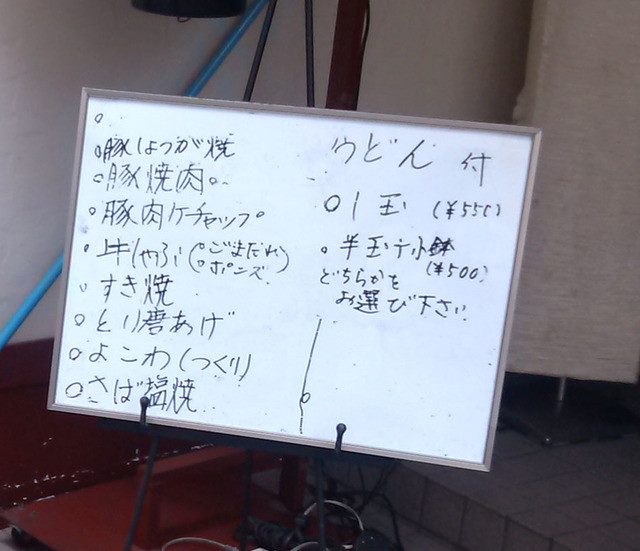 豚しょうが焼
豚焼肉
豚肉ケチャップ
牛しゃぶ(ごまだれ
ポンズ)
すき焼
とり唐あげ
よこわ(つくり)
さば塩焼
うどん 付
1玉 (¥550)
半玉+小鉢
(¥500)
どちらかを
お選び下さい